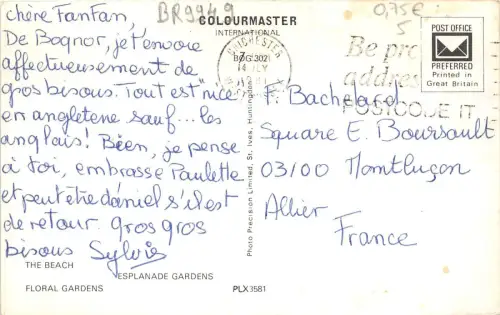 chère FanFan,
De Bognor, je t'envoie
affectueusement de
gros bisous. Tout est "nice"
en angleterre sauf... les
anglais! Bien, je pense
à toi, embrasse Paulette
et peut être daniel s'il est
de retour. gros gros
bisous Sylvie
THE BEACH
ESPLANADE GARDENS
FLORAL GARDENS
PLX3581
BR9949
COLOURMASTER
INTERNATIONAL
Photo Precision Limited, St. Ives, Huntingdon
0,75€
5
CHICHESTER
Be pro
addres
POSTCODE IT
POST OFFICE
PREFERRED
Printed in
Great Britain
F. Bachelard
Square E. Boursault
03100 Montluçon
Allier
France